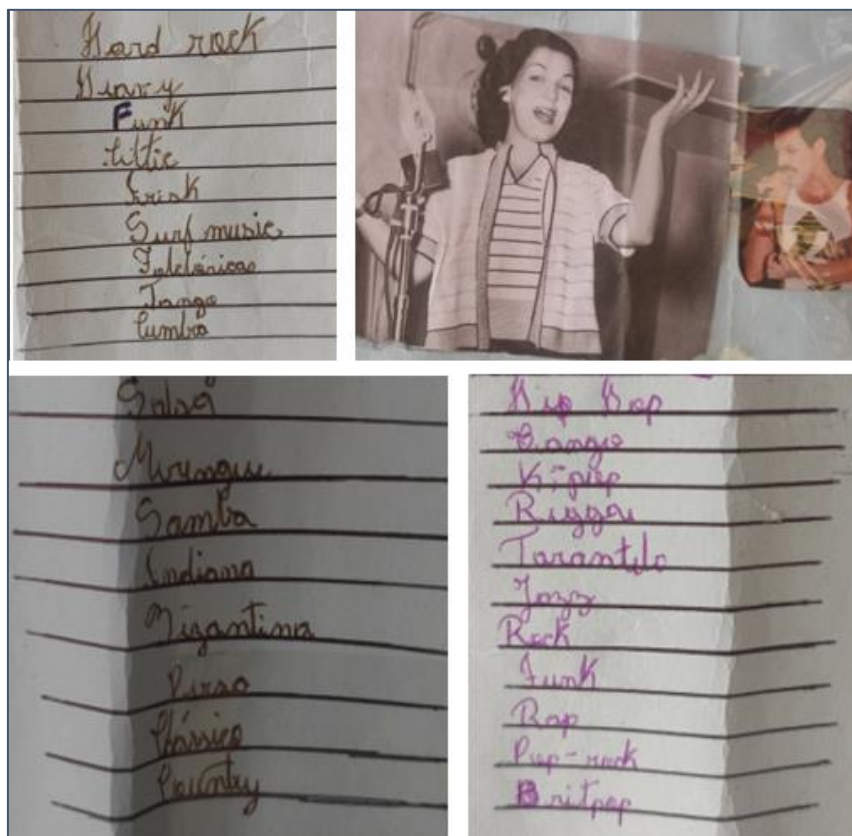 Hard rock
Heavy
Funk
Irish
Surf music
Folclóricas
Tango
Cumbia
Salsa
Merengue
Samba
Indiana
Bizantina
Clássico
Country
Hip Hop
K-pop
Reggae
Tarantela
Jazz
Rock
Funk
Rap
Pop-rock
Britpop